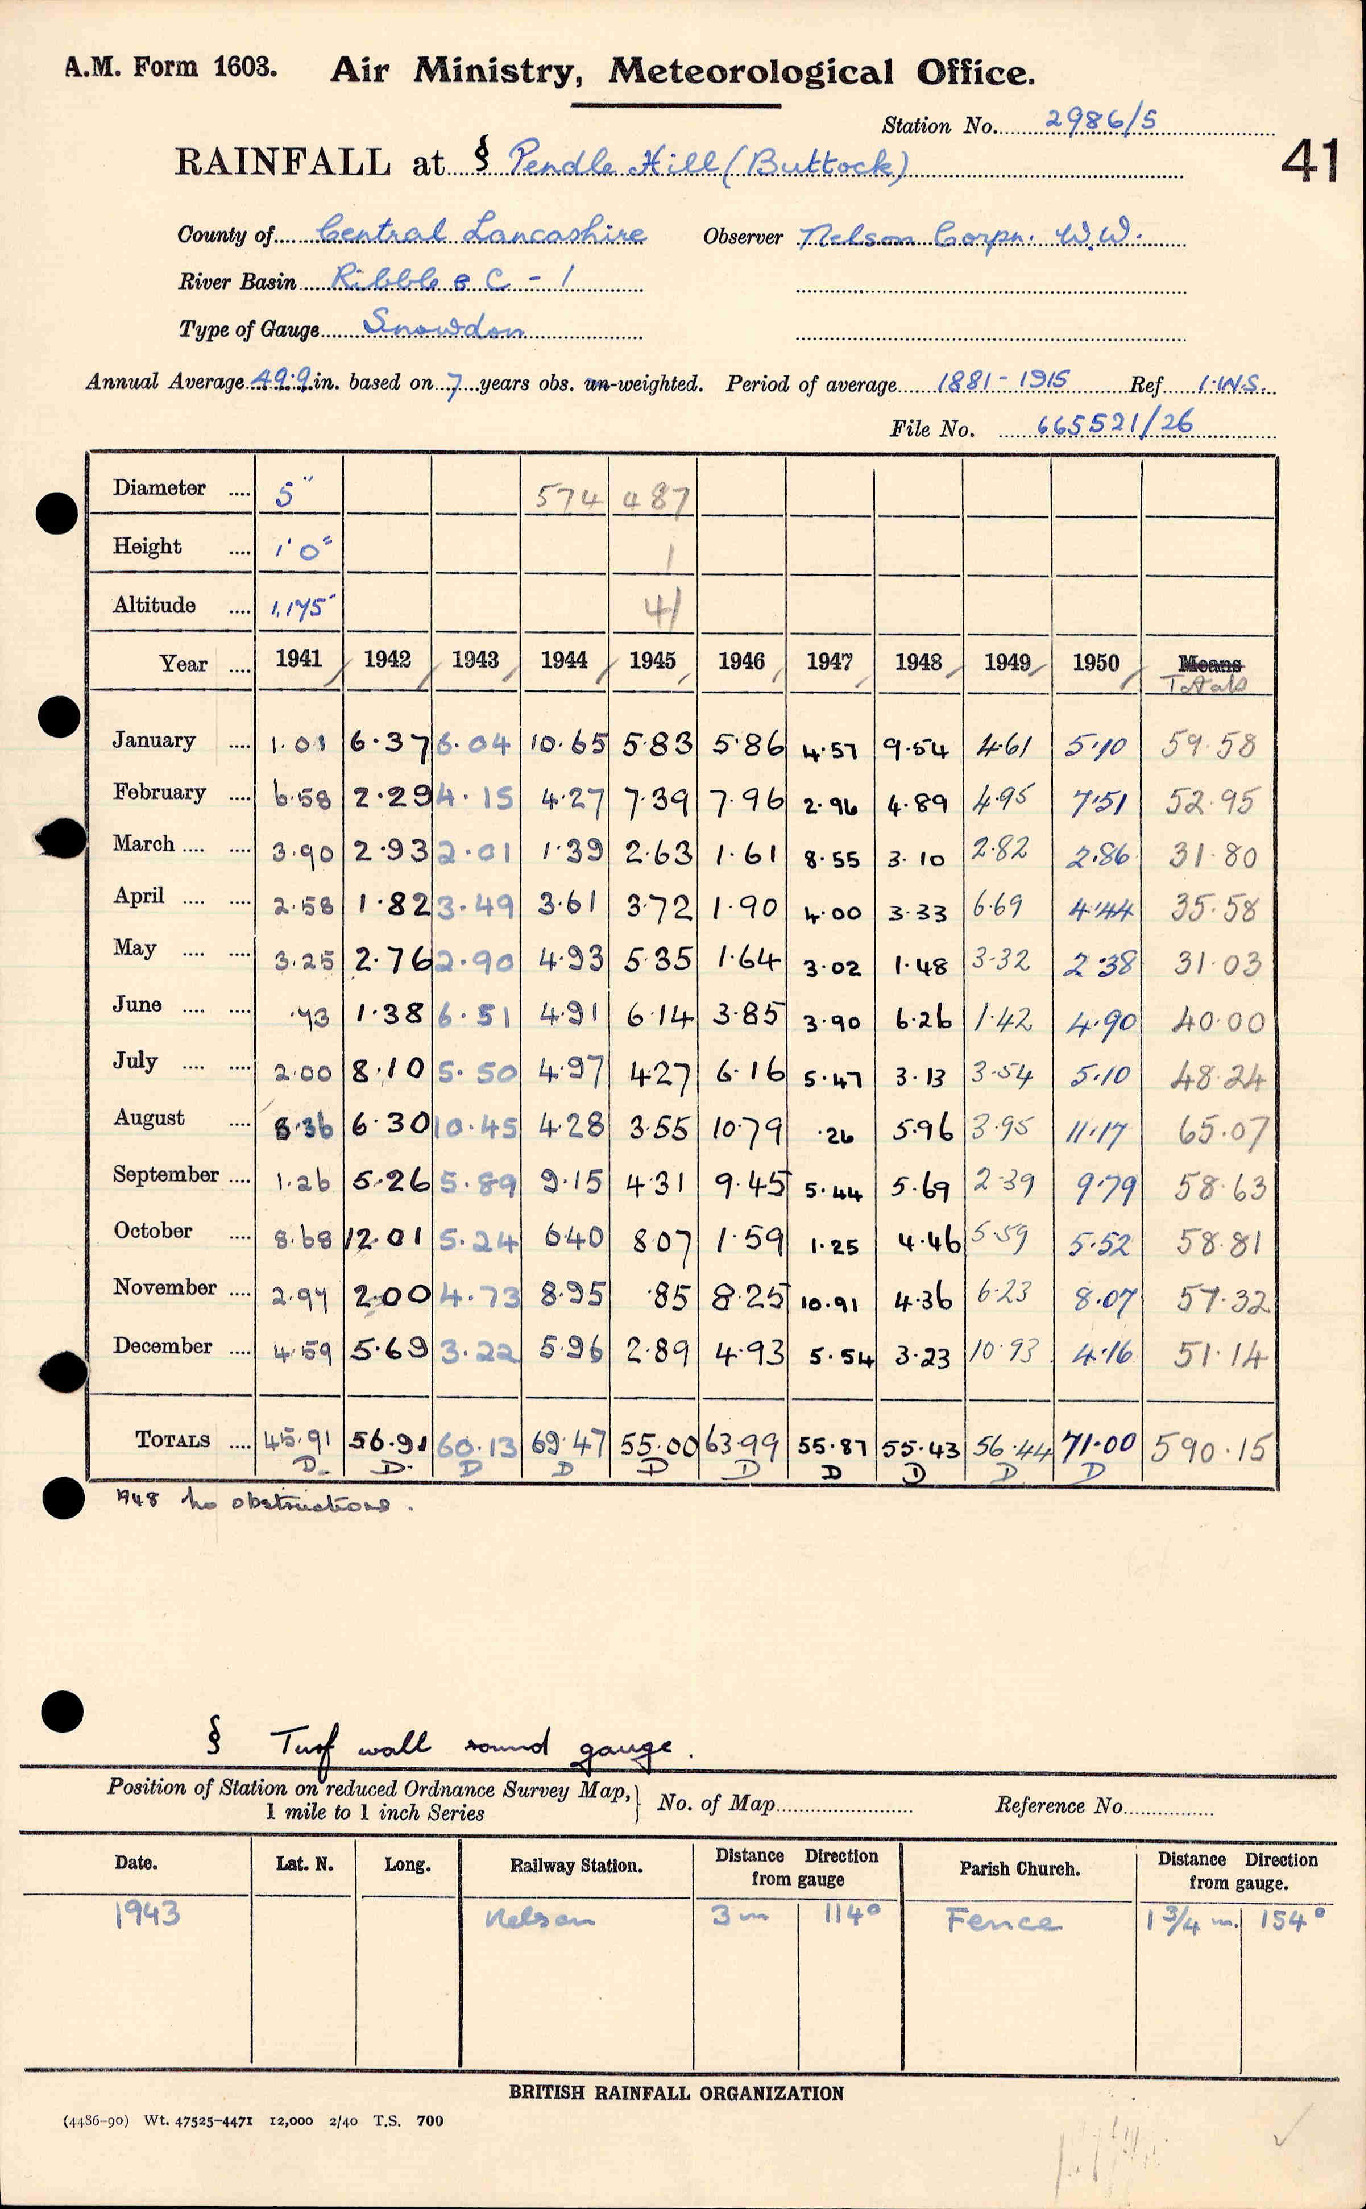 A.M. Form 1603. Air Ministry, Meteorological Office.
Station No. 2986/5
41
RAINFALL at § Pendle Hill (Buttock)
County of Central Lancashire Observer Nelson Corpn. W.W.
River Basin Ribble B C - 1
Type of Gauge Snowdon
Annual Average 49.9 in. based on 7 years obs. un-weighted. Period of average 1881 - 1915 Ref. I.W.S.
File No. 665521/26
Diameter 5" 574 487
Height 1'0" 1
Altitude 1,175' 41
Year 1941 1942 1943 1944 1945 1946 1947 1948 1949 1950 Means Totals
January 1.01 6.37 6.04 10.65 5.83 5.86 4.57 9.54 4.61 5.10 59.58
February 6.58 2.29 4.15 4.27 7.39 7.96 2.96 4.89 4.95 7.51 52.95
March 3.90 2.93 2.01 1.39 2.63 1.61 8.55 3.10 2.82 2.86 31.80
April 2.58 1.82 3.49 3.61 3.72 1.90 4.00 3.33 6.69 4.44 35.58
May 3.25 2.76 2.90 4.93 5.35 1.64 3.02 1.48 3.32 2.38 31.03
June .73 1.38 6.51 4.91 6.14 3.85 3.90 6.26 1.42 4.90 40.00
July 2.00 8.10 5.50 4.97 4.27 6.16 5.47 3.13 3.54 5.10 48.24
August 8.36 6.30 10.45 4.28 3.55 10.79 .26 5.96 3.95 11.17 65.07
September 1.26 5.26 5.89 9.15 4.31 9.45 5.44 5.69 2.39 9.79 58.63
October 8.68 12.01 5.24 6.40 8.07 1.59 1.25 4.46 5.59 5.52 58.81
November 2.97 2.00 4.73 8.95 .85 8.25 10.91 4.36 6.23 8.07 57.32
December 4.59 5.69 3.22 5.96 2.89 4.93 5.54 3.23 10.93 4.16 51.14
TOTALS 45.91 56.91 60.13 69.47 55.00 63.99 55.87 55.43 56.44 71.00 590.15
D. D. D D D D D D D. D
1948 No obstructions.
§ Turf wall round gauge.
Position of Station on reduced Ordnance Survey Map, 1 mile to 1 inch Series } No. of Map Reference No.
Date. Lat. N. Long. Railway Station. Distance Direction from gauge Parish Church. Distance Direction from gauge.
1943 Nelson 3 m 114° Fence 1 3/4 m. 154°
BRITISH RAINFALL ORGANIZATION
(4486-90) Wt. 47525-4471 12,000 2/40 T.S. 700